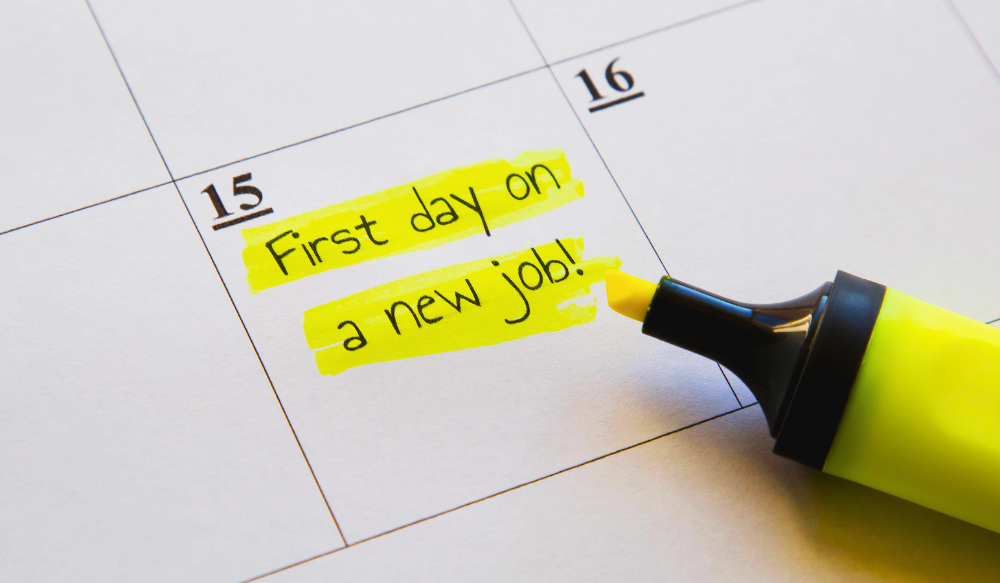 16
15
First day on
a new job!